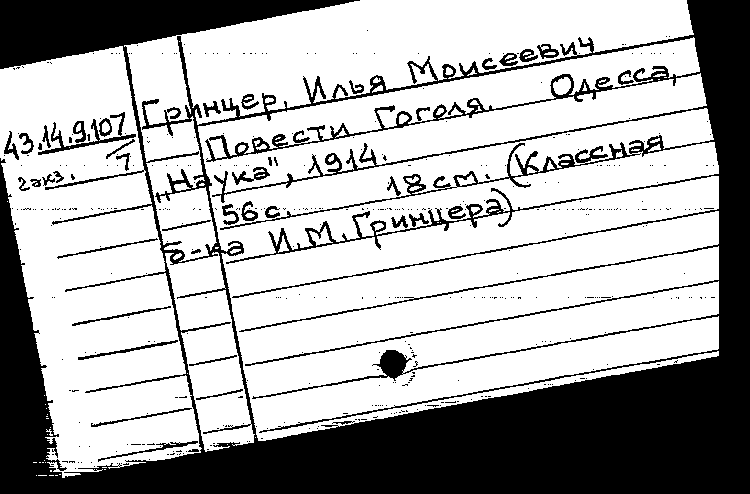 Гринцер, Илья Моисеевич
43.14.9.107/7
2 экз.
Повести Гоголя. Одесса,
„Наука", 1914.
56 с. 18 см. (Классная
б-ка И.М. Гринцера)